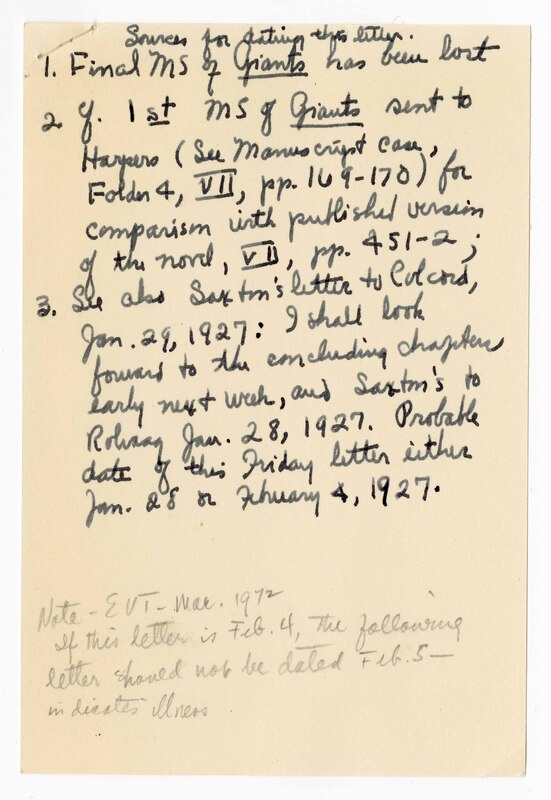 Sources for dating this letter.
1. Final MS of Giants has been lost
2 Cf. 1st MS of Giants sent to
Harpers (See Manuscript case,
Folder 4, VII, pp. 169-170) for
comparison with published version
of the novel, VII, pp. 451-2;
3. See also Saxton's letter to Colcord,
Jan. 29, 1927: I shall look
forward to the concluding chapters
early next week, and Saxton's to
Rolvaag Jan. 28, 1927. Probable
date of this Friday letter either
Jan. 28 or February 4, 1927.
Note - EVT - Mar. 1972
If this letter is Feb. 4, the following
letter should not be dated Feb. 5 —
indicates illness